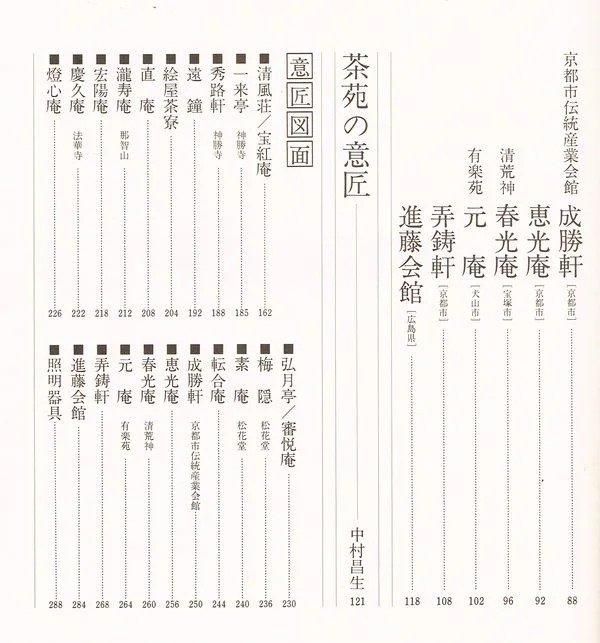 京都市伝統産業会館 成勝軒［京都市］ 88
恵光庵［京都市］ 92
清荒神 春光庵［宝塚市］ 96
有楽苑 元庵［犬山市］ 102
弄鋳軒［京都市］ 108
進藤会館［広島県］ 118
茶苑の意匠 中村昌生 121
意匠図面
■清風荘／宝紅庵 162
■一来亭 神勝寺 185
■秀路軒 神勝寺 188
■遠鐘 192
■絵屋茶寮 204
■直庵 208
■瀧寿庵 那智山 212
■宏陽庵 218
■慶久庵 法華寺 222
■燈心庵 226
■弘月亭／審悦庵 230
■梅隠 松花堂 236
■素庵 松花堂 240
■転合庵 244
■成勝軒 京都市伝統産業会館 250
■恵光庵 256
■春光庵 清荒神 260
■元庵 有楽苑 264
■弄鋳軒 268
■進藤会館 284
■照明器具 288